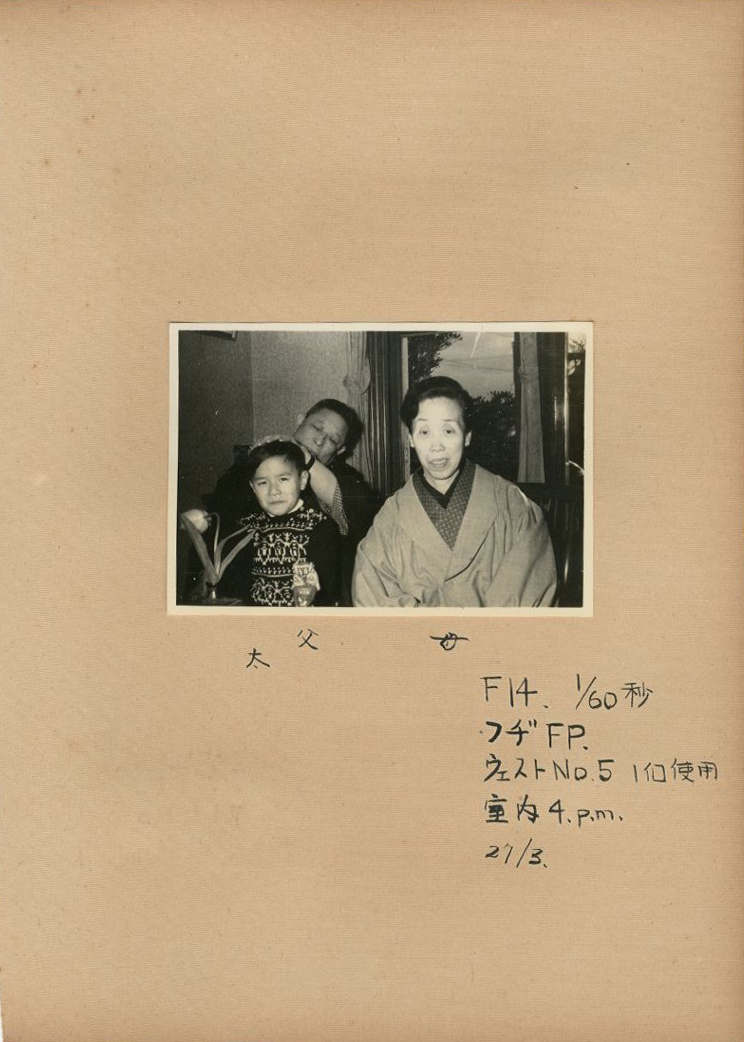 父 母
太
F14. 1/60秒
フヂFP.
ウェストNo.5 1個使用
室内4.p.m.
27/3.